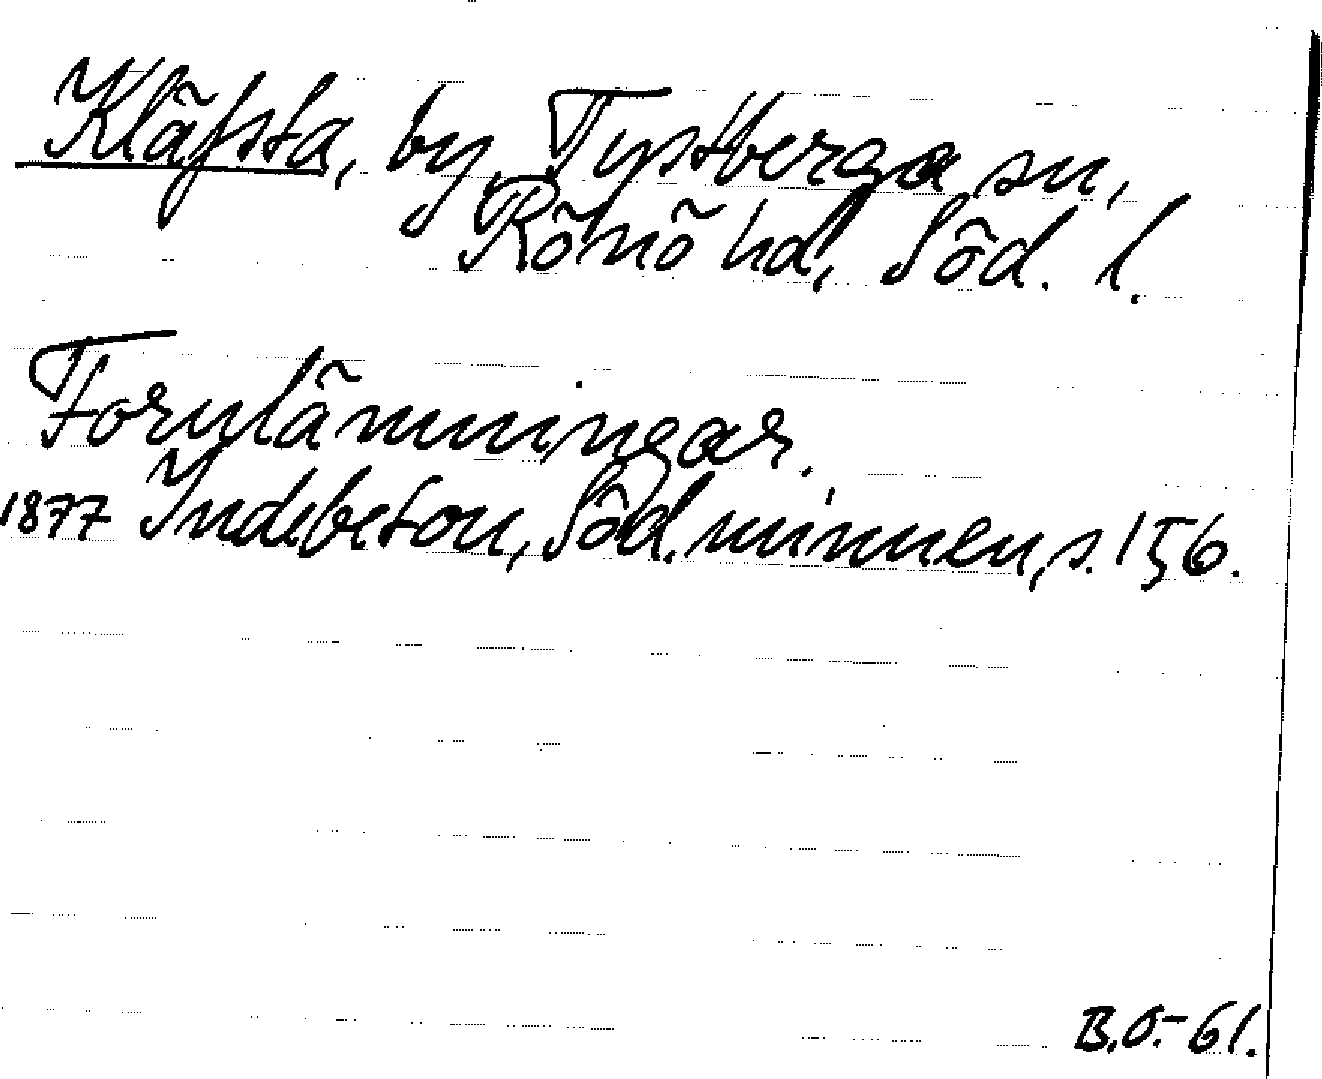 Kläfsta, by, Tystberga sn,
Rönö hd, Söd. l.
Fornlämningar.
1877 Indebetou, Söd. minnen, s. 156.
B.O.-61.